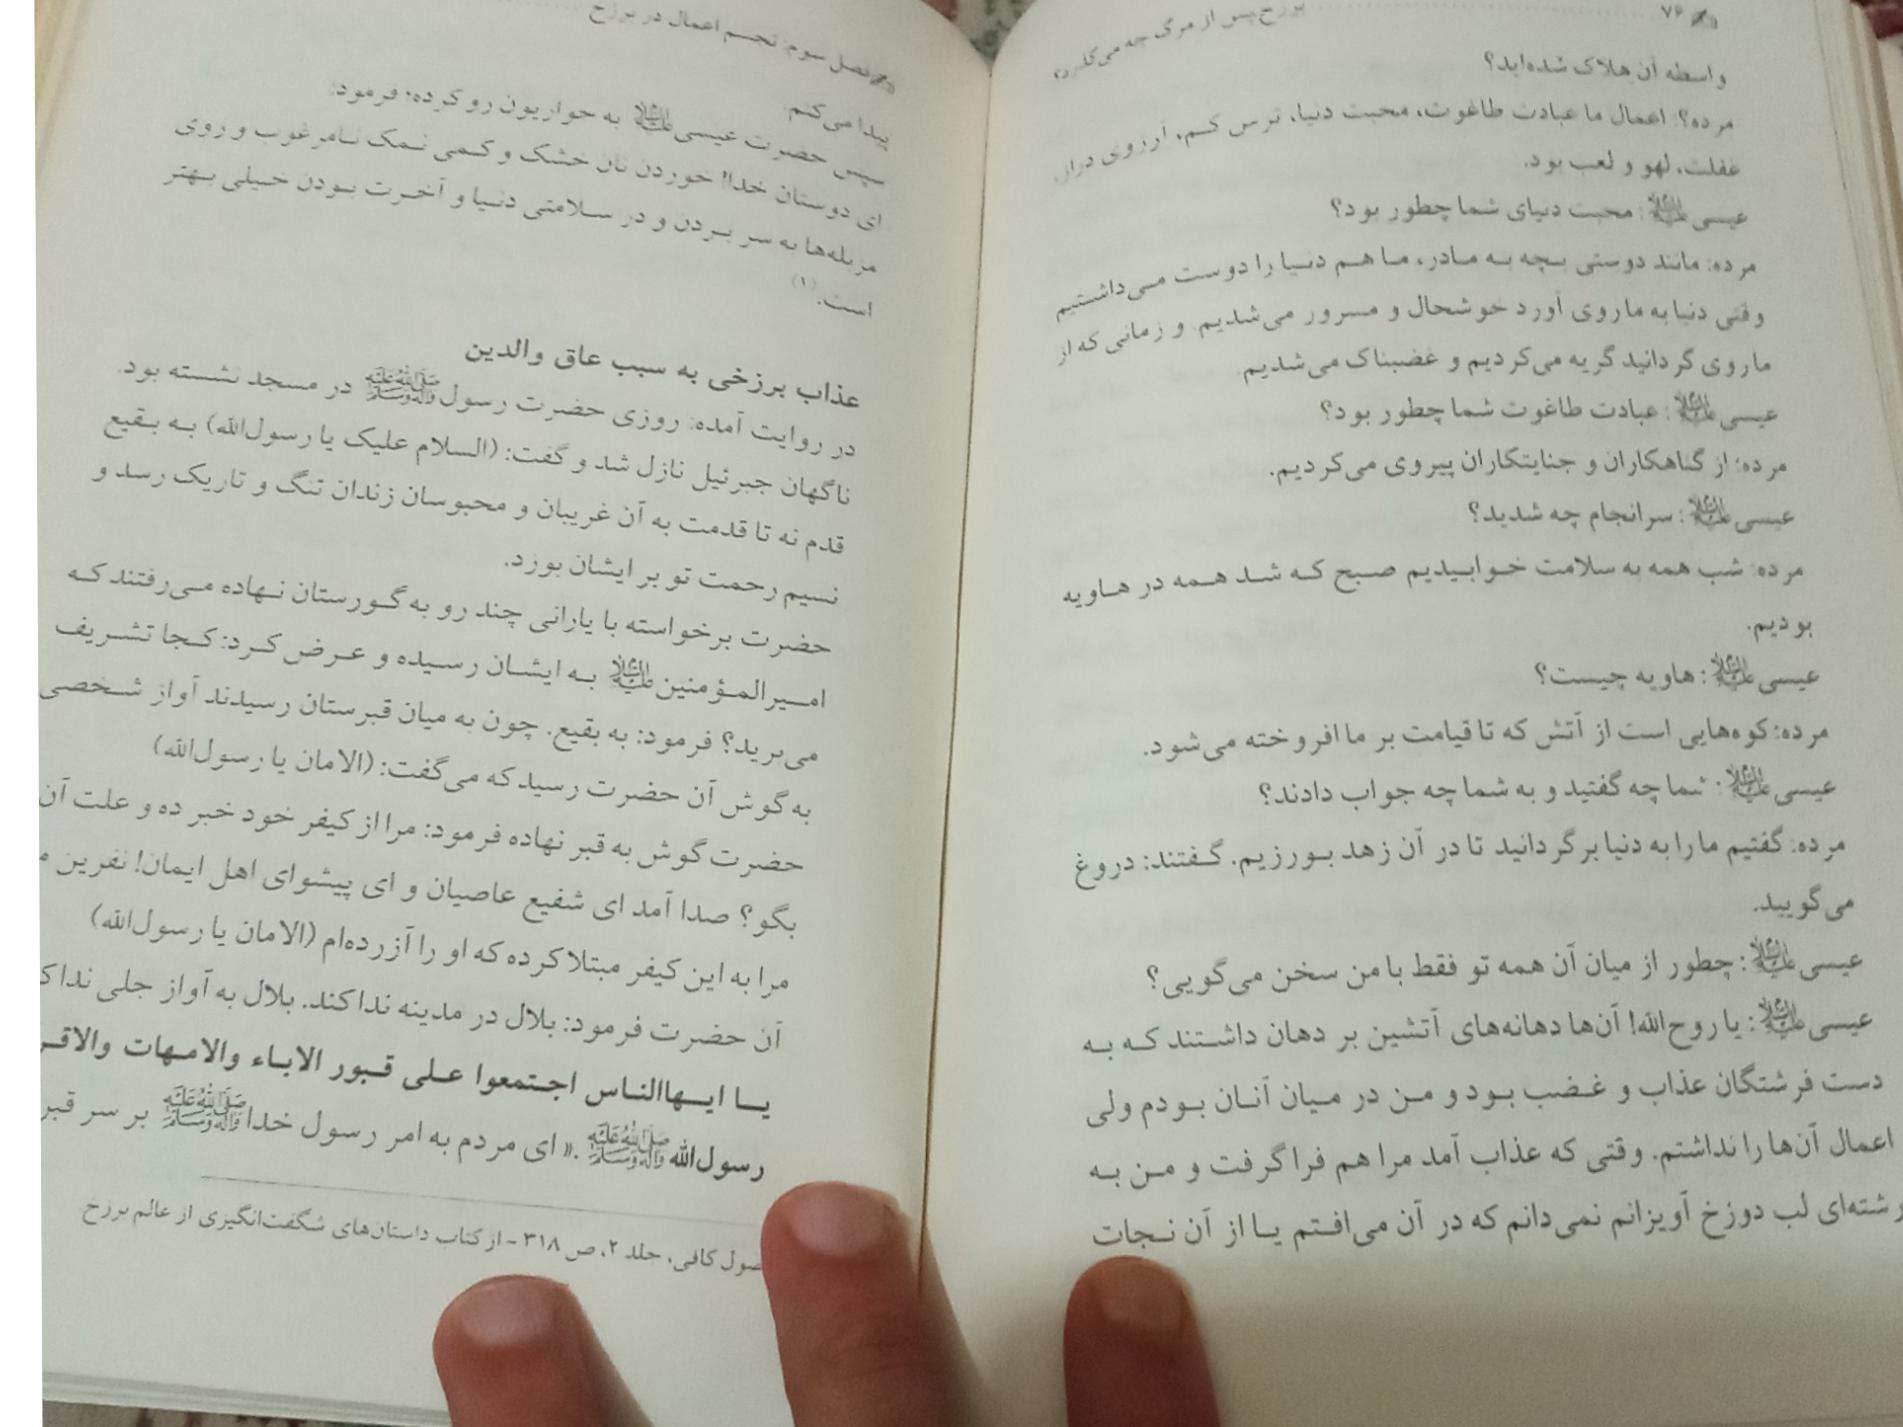 ۷۶ برزخ پس از مرگ چه می‌گذرد؟
واسطه آن هلاک شده‌اید؟
مرده؟: اعمال ما عبادت طاغوت، محبت دنیا، ترس کم، آرزوی دراز،
غفلت، لهو و لعب بود.
عیسی علیه‌السلام: محبت دنیای شما چطور بود؟
مرده: مانند دوستی بچه به مادر، ما هم دنیا را دوست می‌داشتیم
وقتی دنیا به ما روی آورد خوشحال و مسرور می‌شدیم. و زمانی که از
ما روی گردانید گریه می‌کردیم و غضبناک می‌شدیم.
عیسی علیه‌السلام: عبادت طاغوت شما چطور بود؟
مرده: از گناهکاران و جنایتکاران پیروی می‌کردیم.
عیسی علیه‌السلام: سرانجام چه شدید؟
مرده: شب همه به سلامت خوابیدیم صبح که شد همه در هاویه
بودیم.
عیسی علیه‌السلام: هاویه چیست؟
مرده: کوه‌هایی است از آتش که تا قیامت بر ما افروخته می‌شود.
عیسی علیه‌السلام: شما چه گفتید و به شما چه جواب دادند؟
مرده: گفتیم ما را به دنیا برگردانید تا در آن زهد بورزیم. گفتند: دروغ
می‌گویید.
عیسی علیه‌السلام: چطور از میان آن همه تو فقط با من سخن می‌گویی؟
عیسی علیه‌السلام: یا روح‌الله! آن‌ها دهانه‌های آتشین بر دهان داشتند که به
دست فرشتگان عذاب و غضب بود و من در میان آنان بودم ولی
اعمال آن‌ها را نداشتم. وقتی که عذاب آمد مرا هم فرا گرفت و من به
رشته‌ای لب دوزخ آویزانم نمی‌دانم که در آن می‌افتم یا از آن نجات
فصل سوم: تجسم اعمال در برزخ
پیدا می‌کنم.
سپس حضرت عیسی علیه‌السلام به حواریون رو کرده؛ فرمود:
ای دوستان خدا! خوردن نان خشک و کمی نمک نامرغوب و روی
مزبله‌ها به سر بردن و در سلامتی دنیا و آخرت بودن خیلی بهتر
است.(۱)
عذاب برزخی به سبب عاق والدین
در روایت آمده: روزی حضرت رسول صلی‌الله‌علیه‌وآله‌وسلم در مسجد نشسته بود.
ناگهان جبرئیل نازل شد و گفت: (السلام علیک یا رسول‌الله) به بقیع
قدم نه تا قدمت به آن غریبان و محبوسان زندان تنگ و تاریک رسد و
نسیم رحمت تو بر ایشان بوزد.
حضرت برخواسته با یارانی چند رو به گورستان نهاده می‌رفتند که
امیرالمؤمنین علیه‌السلام به ایشان رسیده و عرض کرد: کجا تشریف
می‌برید؟ فرمود: به بقیع. چون به میان قبرستان رسیدند آواز شخصی
به گوش آن حضرت رسید که می‌گفت: (الامان یا رسول‌الله)
حضرت گوش به قبر نهاده فرمود: مرا از کیفر خود خبر ده و علت آن
بگو؟ صدا آمد ای شفیع عاصیان و ای پیشوای اهل ایمان! نفرین
مرا به این کیفر مبتلا کرده که او را آزرده‌ام (الامان یا رسول‌الله)
آن حضرت فرمود: بلال در مدینه ندا کند. بلال به آواز جلی ندا
یا ایهاالناس اجتمعوا علی قبور الاباء والامهات والاقر
رسول‌الله صلی‌الله‌علیه‌وآله‌وسلم.» ای مردم به امر رسول خدا صلی‌الله‌علیه‌وآله‌وسلم بر سر قبر
صول کافی، جلد ۲، ص ۳۱۸ - از کتاب داستان‌های شگفت‌انگیزی از عالم برزخ